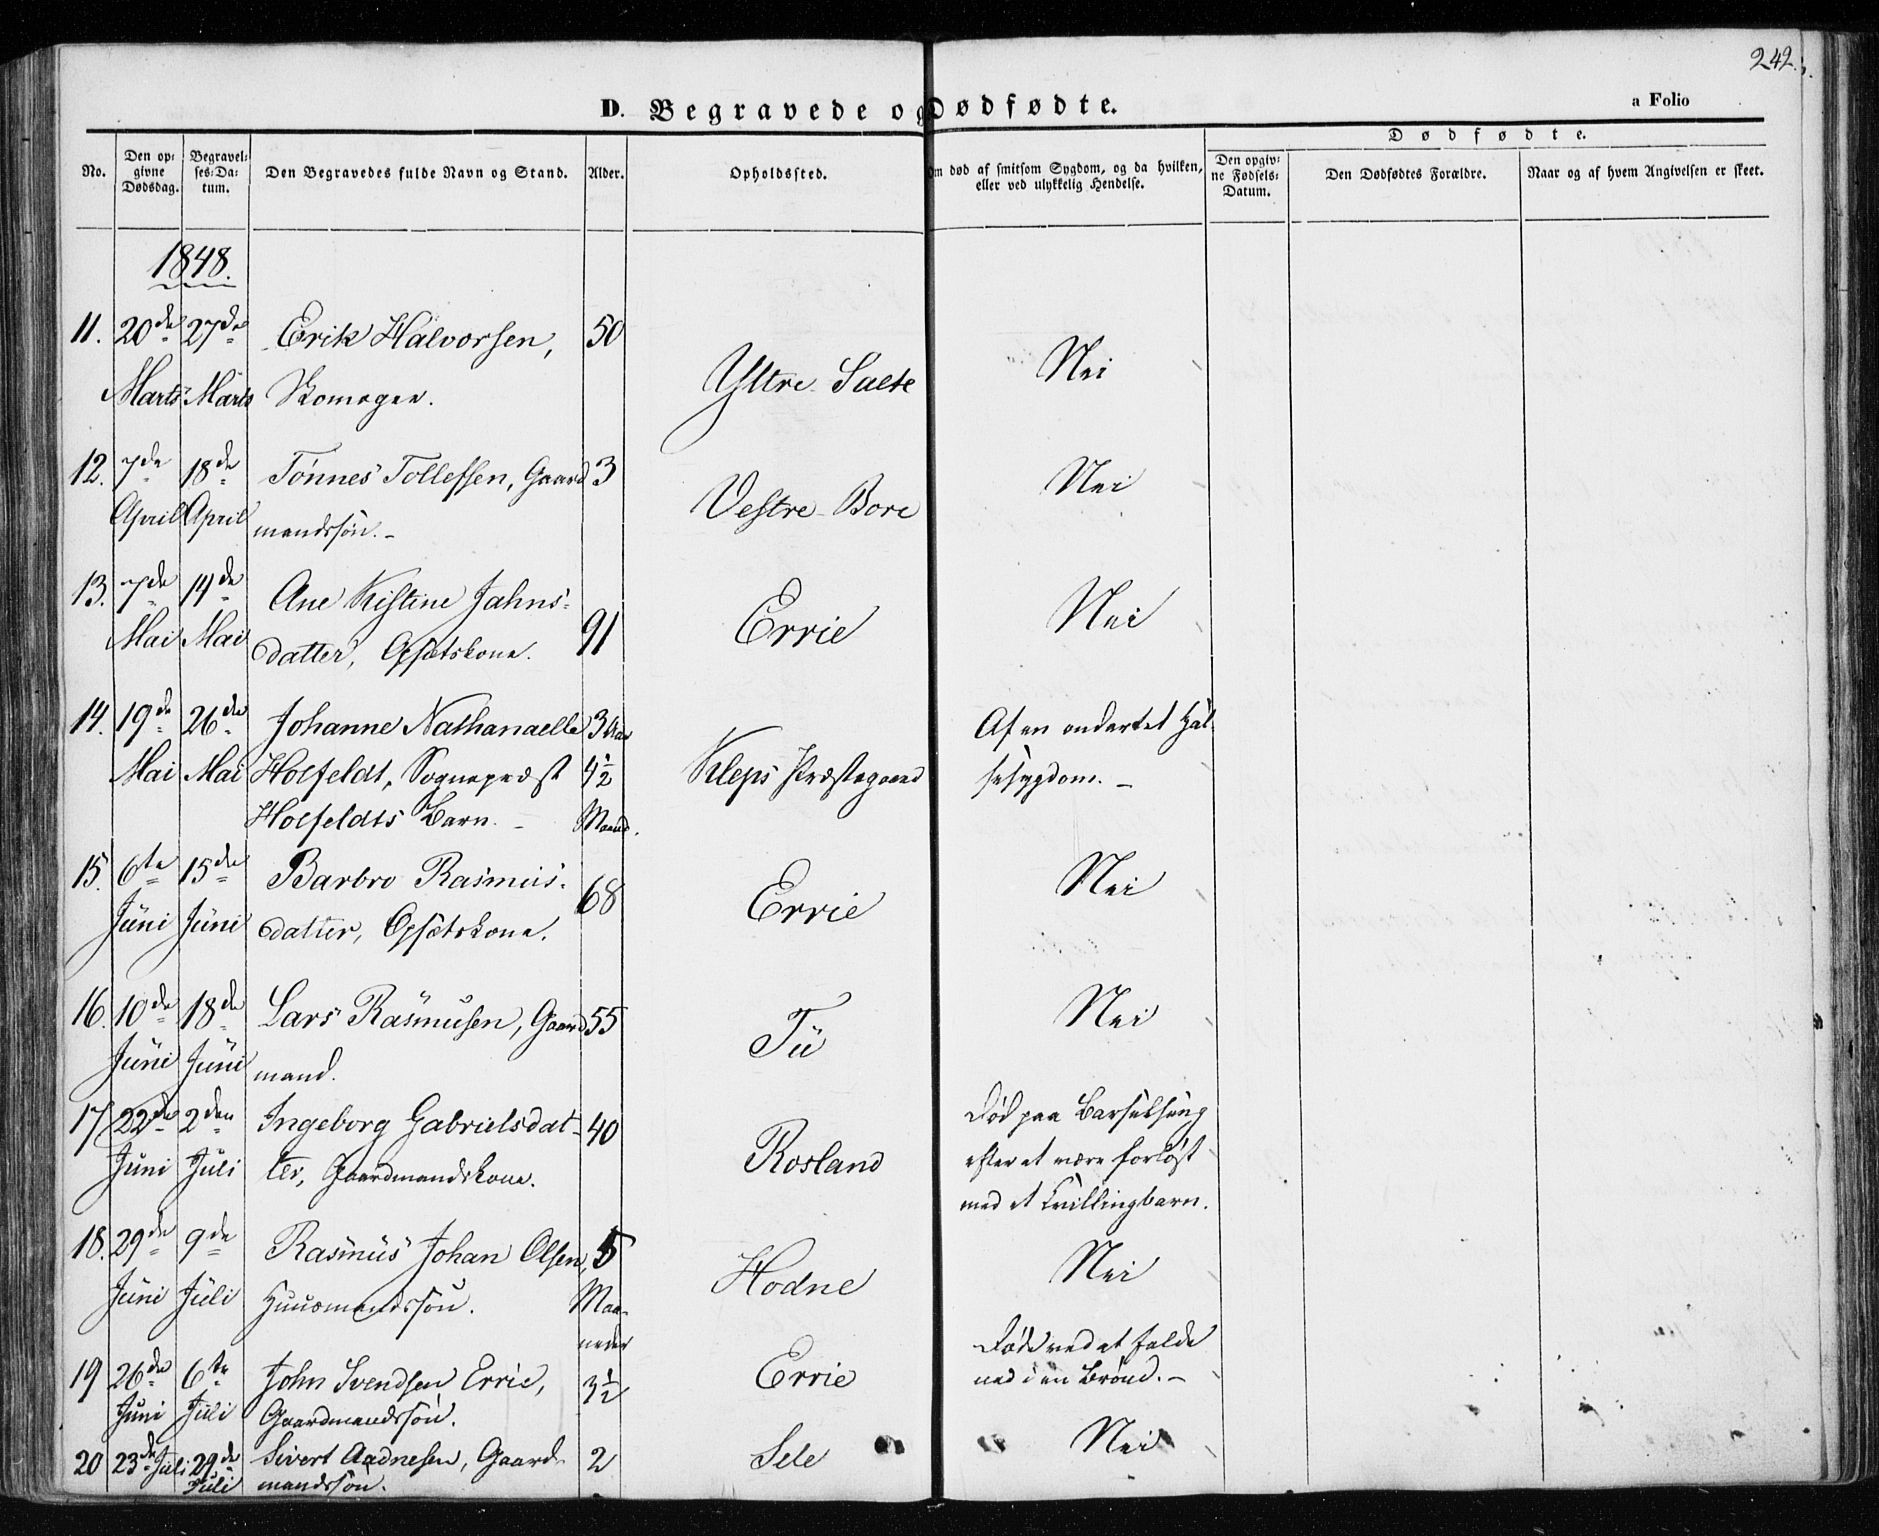 242.
D. Begravede og Dødfødte.
a Folio
Dødfødte.
No.
Den opgivne Dødsdag.
Begravelses-Datum.
Den Begravedes fulde Navn og Stand.
Alder.
Opholdssted.
Om død af smitsom Sygdom, og da hvilken,
eller ved ulykkelig Hendelse.
Den opgivne Fødsels-Datum.
Den Dødfødtes Forældre.
Naar og af hvem Angivelsen er skeet.
1848.
11. 20de 27de Erik Halvorsen, 50
Marts Marts Skomager. Yttre Salte Nei
12. 7de 18de Tönnes Tollefsen, Gaard 3 Nei
April April mandssön. Vestre Bore
13. 7de 14de Ane Kistine Jahns-
Mai Mai datter, Opsætskone. 91 Errie Nei
14. 19de 26de Johanne Nathanaelle 3 Aar Af en ondartet Hal
Mai Mai Holfeldt, Sognepræst 4½ Kleps Præstegaard sesygdom.
Holfeldts Barn. Maand.
15. 6te 15de Barbro Rasmus- 68 Nei
Juni Juni datter, Opsætskone. Errie
16. 10de 18de Lars Rasmusen, Gaard 55 Nei
Juni Juni mand. Tü
17 22de 2den Ingeborg Gabrielsdat- 40 Död paa Barselseng
Juni Juli ter, Gaardmandskone. Rosland efter at være forlöst
med et Tvillingbarn.
18. 29de 9de Rasmus Johan Olsen, 5 Hodne Nei
Juni Juli Huusmandssön. Maa-
neder
19 26de 6te John Svendsen Errie, 3½ Errie Döde ved at falde
Juni Juli Gaardmandssön. ned i en Brönd.
20 23de Juli 29de Sivert Aadnesen, Gaard- 2 Sele Nei
Juli mandssön.